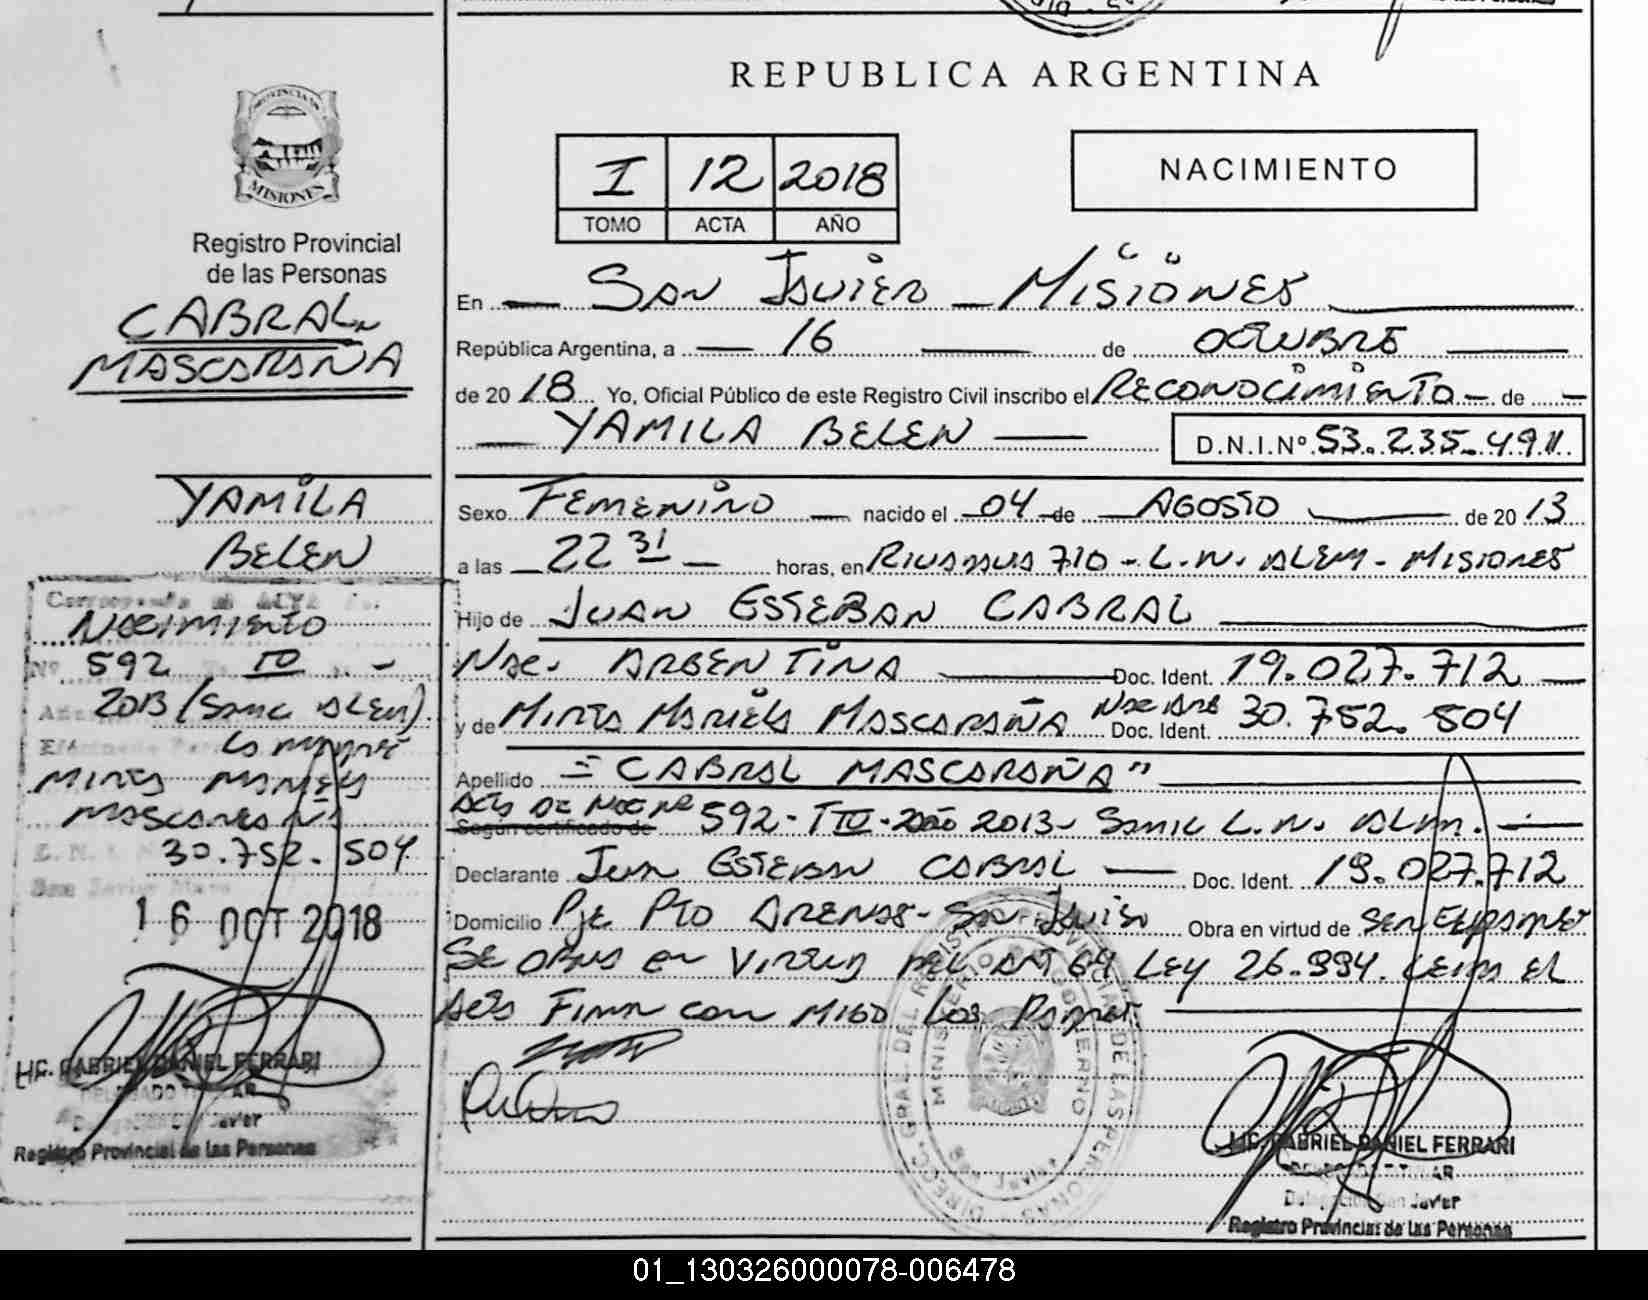 REPUBLICA ARGENTINA
PROVINCIA DE
MISIONES
Registro Provincial
de las Personas
CABRAL
MASCARAÑA
YAMILA
BELEN
Corresponde al ACTA
NACIMIENTO
Nº 592 T III -
2013 (SAMIC ALEM)
MIRTA MARIELA
MASCARAÑA
30.752.504
16 OCT 2018
LIC. GABRIEL DANIEL FERRARI
DELEGADO TITULAR
Delegación San Javier
Registro Provincial de las Personas
I 12 2018
TOMO ACTA AÑO
NACIMIENTO
En SAN JAVIER - MISIONES
República Argentina, a 16 de OCTUBRE
de 20 18 Yo, Oficial Público de este Registro Civil inscribo el RECONOCIMIENTO - de
YAMILA BELEN D.N.I.Nº 53.235.491
Sexo FEMENINO nacido el 04 de AGOSTO de 20 13
a las 22 31 horas, en 710 - L.N. ALEM - MISIONES
Hijo de JUAN ESTEBAN CABRAL
NAC. ARGENTINA Doc. Ident. 19.027.712
y de MIRTA MARIELA MASCARAÑA NAC ARG Doc. Ident. 30.752.504
Apellido = CABRAL MASCARAÑA"
ACTA DE NAC Nº 592 - T III - AÑO 2013 - SAMIC L.N. ALEM.
Según certificado de
Declarante JUAN ESTEBAN CABRAL Doc. Ident. 19.027.712
Domicilio PJE PTO ARENAS - SAN JAVIER Obra en virtud de SER EL PADRE
SE OBRA EN VIRTUD DEL ART 64 LEY 26.994. LEIDA EL
ACTA FIRMA CON MIGO LOS
DIREC. GRAL. DEL REGISTRO PROVINCIAL DE LAS PERSONAS
MINISTERIO DE GOBIERNO
LIC. GABRIEL DANIEL FERRARI
DELEGADO TITULAR
Delegación San Javier
Registro Provincial de las Personas
01_130326000078-006478